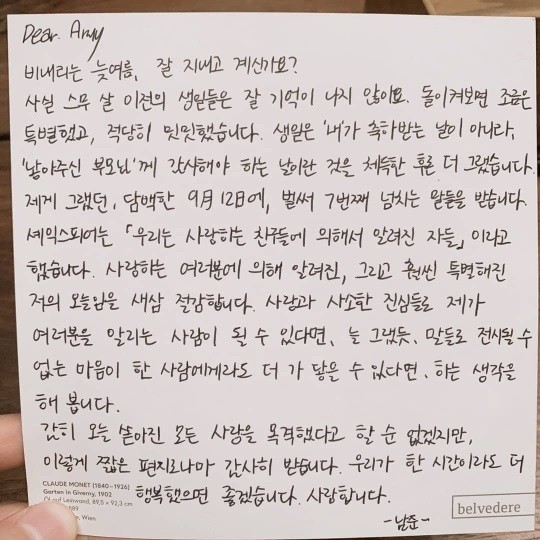 Dear. Army
비내리는 늦여름, 잘 지내고 계신가요?
사실 스무 살 이전의 생일들은 잘 기억이 나지 않아요. 돌이켜보면 조금은
특별했고, 적당히 밋밋했습니다. 생일은 '내'가 축하받는 날이 아니라,
'낳아주신 부모님'께 감사해야 하는 날이란 것을 체득한 후론 더 그랬습니다.
제게 그랬던, 담백한 9月 12日에, 벌써 7번째 넘치는 말들을 받습니다.
셰익스피어는 「우리는 사랑하는 친구들에 의해서 알려진 자들」이라고
했습니다. 사랑하는 여러분에 의해 알려진, 그리고 훨씬 특별해진
저의 오늘임을 새삼 절감합니다. 사랑과 사소한 진심들로 제가
여러분을 알리는 사람이 될 수 있다면, 늘 그랬듯, 말들로 전시될 수
없는 마음이 한 사람에게라도 더 가 닿을 수 있다면, 하는 생각을
해 봅니다.
감히 오늘 쏟아진 모든 사랑을 목격했다고 할 순 없겠지만,
이렇게 짧은 편지로나마 감사히 받습니다. 우리가 한 시간이라도 더
행복했으면 좋겠습니다. 사랑합니다.
-남준-
CLAUDE MONET (1840–1926)
Garten in Giverny, 1902
Öl auf Leinwand, 89,5 × 92,3 cm
889
Wien
belvedere